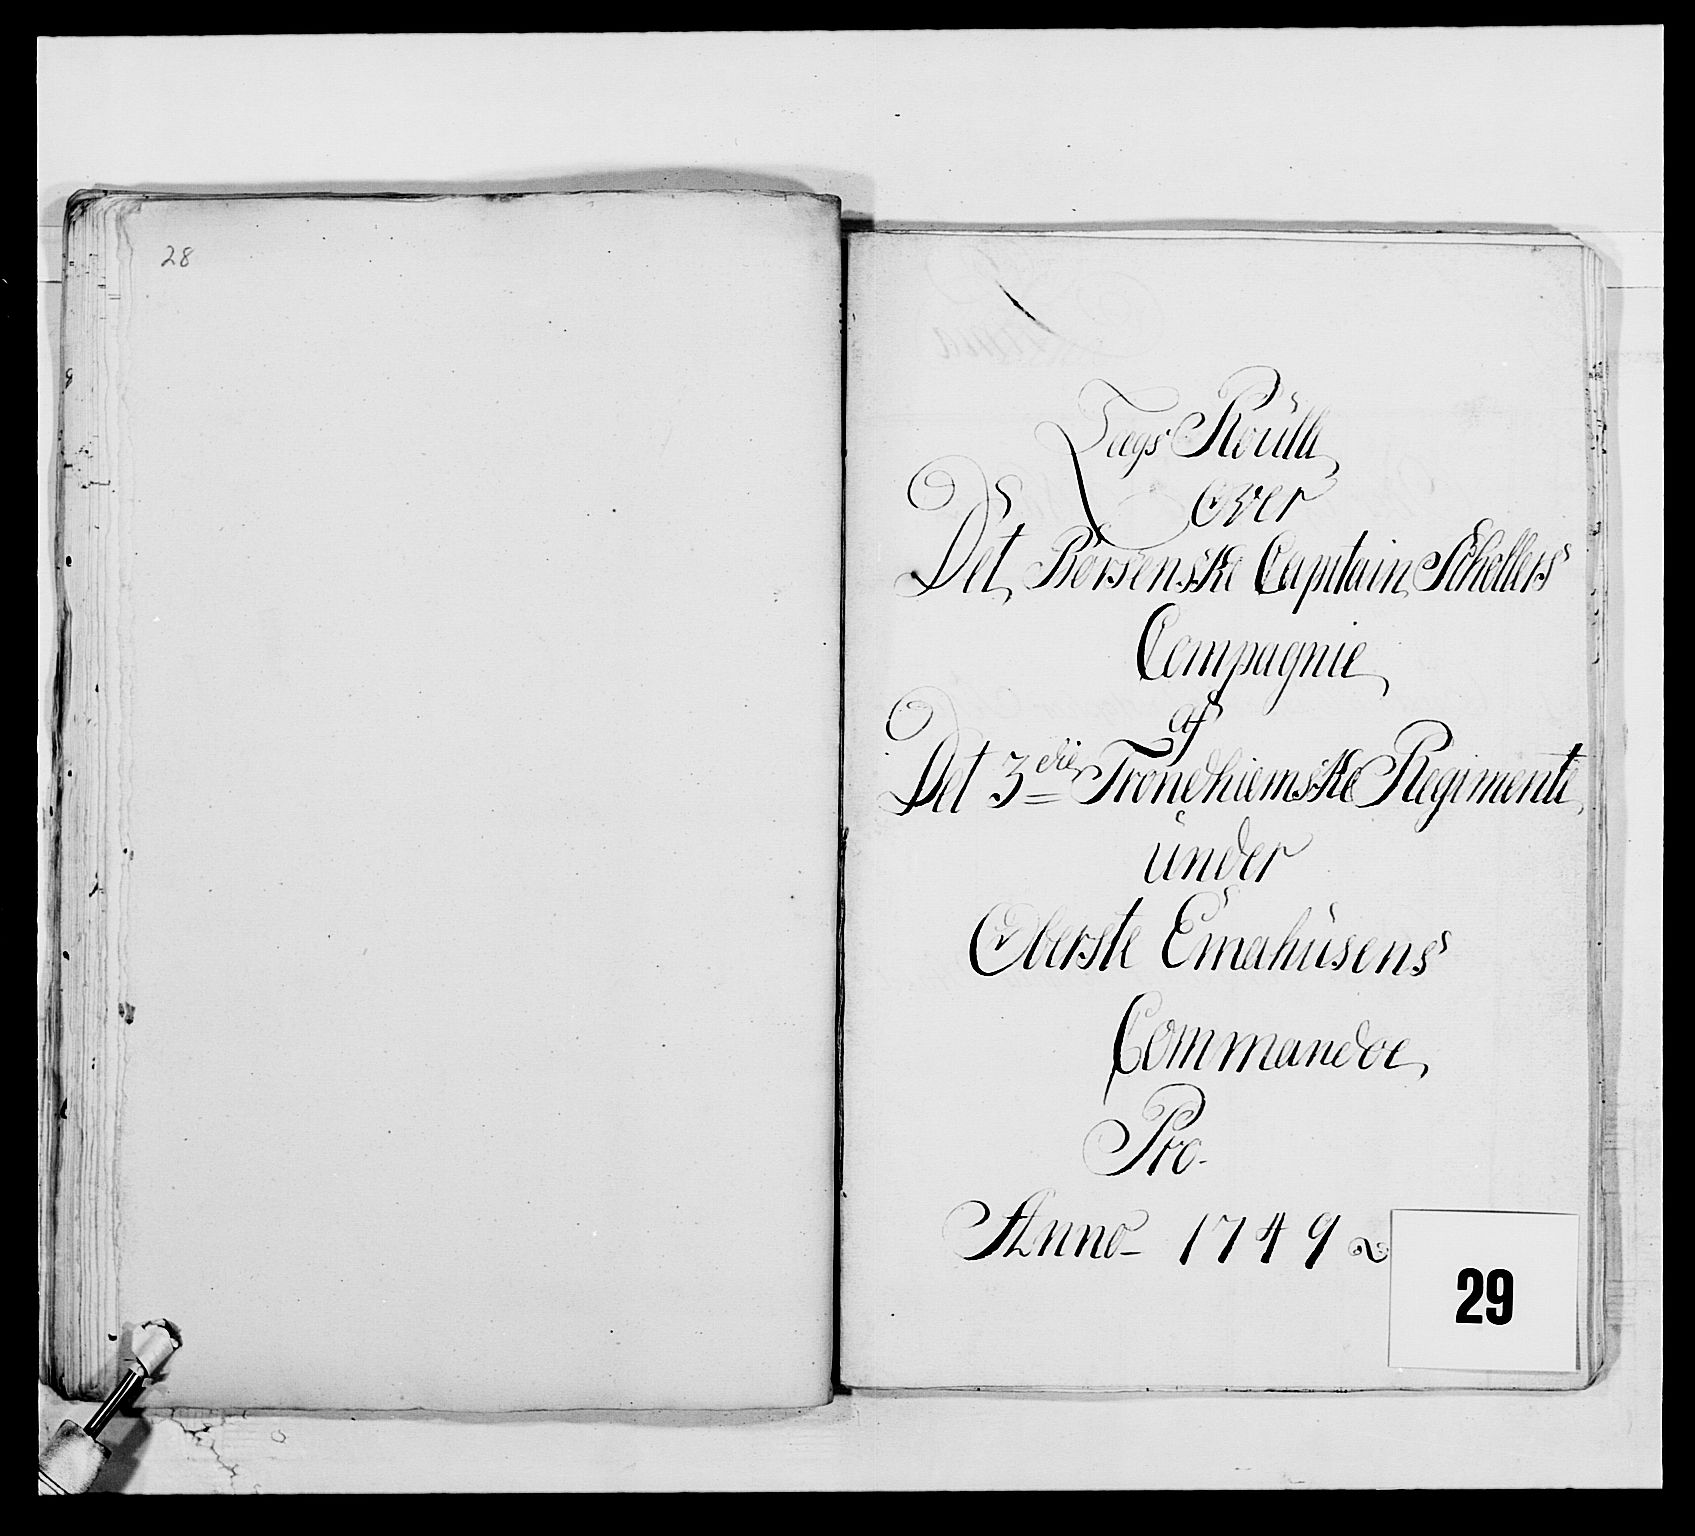 28
Lægs Roülle
Over
Det Børsenske Capitain Schøllers
Compagnie
af
Det 3die Trondhiemske Regimente
ünder
Oberste Emahüsens
Commandoe
Pro.
Anno 1749
29